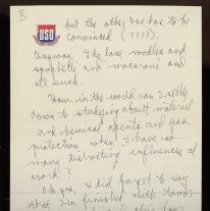 5.
USO
but the other one has to be
convinced (????).
Anyway, I do love noodles and
spaghetti and macaroni and
all such.
How in the world can I settle
down to studying about material
and chemical agents and gas
protection when I have so
many distracting influences at
work?
Oh yes, I did forget to say
that I'm finished with